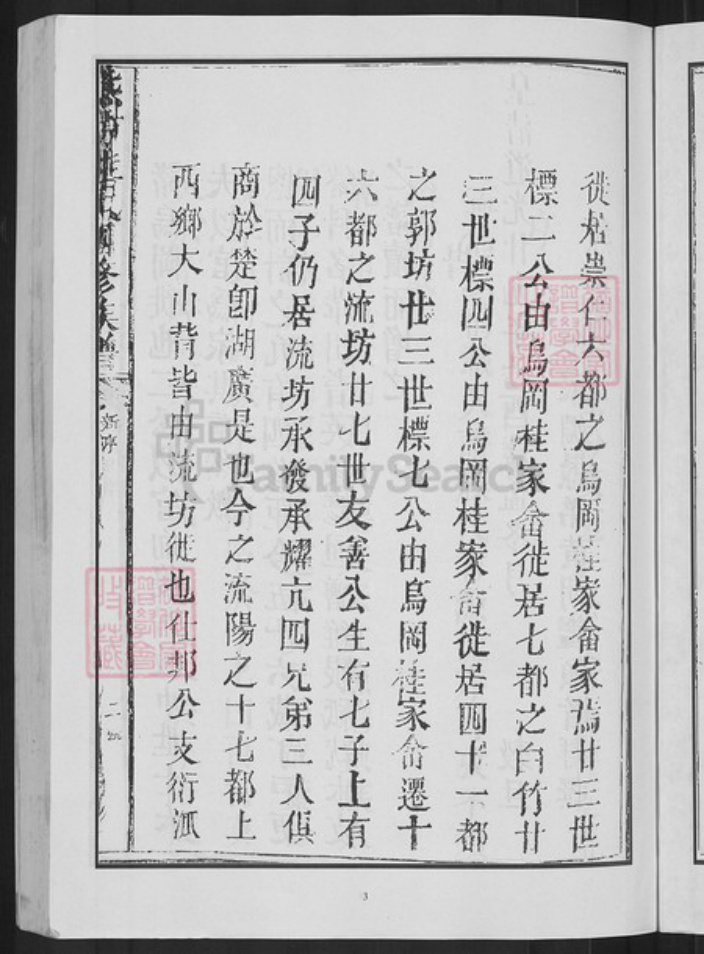 徙居崇仁六都之烏岡桂家畲家焉廿三世
標二公由烏岡桂家畲徙居七都之白竹廿
三世標四公由烏岡桂家畲徙居四十一都
之郭坊廿三世標七公由烏岡桂家畲遷十
六都之流坊廿七世友善公生有七子上有
四子仍居流坊承發承耀亢四兄弟三人俱
商於楚卽湖廣是也今之流陽之十七都上
西鄉大山背皆由流坊徙也仕邦公支衍派
修族譜
新序
二
FamilySearch
3